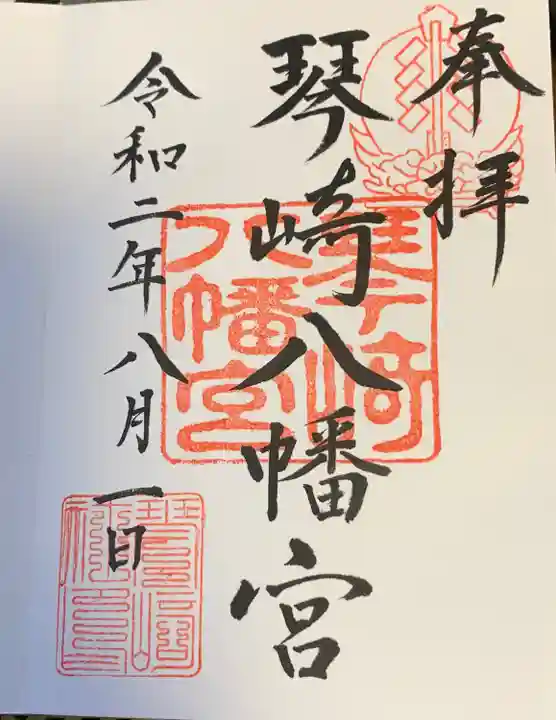 奉拝
琴崎八幡宮
琴崎八幡宮
令和二年八月一日